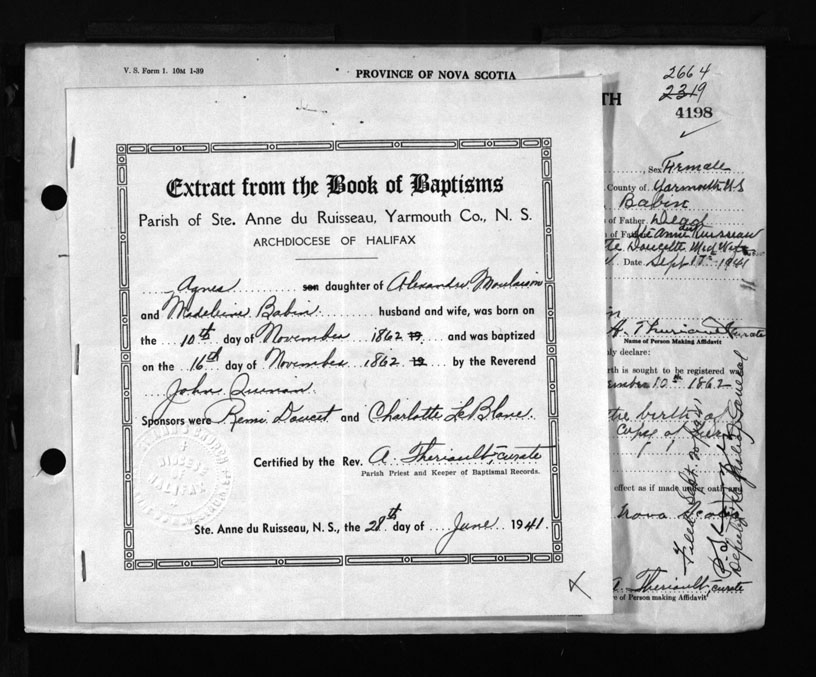 V. S. Form 1. 10M 1-39
PROVINCE OF NOVA SCOTIA
2664
2319
4198
TH
Extract from the Book of Baptisms
Parish of Ste. Anne du Ruisseau, Yarmouth Co., N. S.
ARCHDIOCESE OF HALIFAX
Agnes son daughter of Alexandre Moulaison
and Madeleine Babin husband and wife, was born on
the 10th day of November 1862 19 and was baptized
on the 16th day of November 1862 19 by the Reverend
John Quinan
Sponsors were Remi Doucet and Charlotte LeBlanc.
Certified by the Rev. A. Theriault, curate
Parish Priest and Keeper of Baptismal Records.
Ste. Anne du Ruisseau, N. S., the 28th day of June 1941
Sex Female
County of Yarmouth N.S
Babin
of Father Dead
Ste Anne Ruisseau
Doucette Mid Wife
Date Sept 17th 1941
A. Theriault curate
Name of Person Making Affidavit
ly declare:
rth is sought to be registered was
ember 10th 1862
the birth of
copy of
effect as if made under oath and
Nova Scotia
A. Theriault, curate
e of Person making Affidavit
Filed Sept. 20 1941
Deputy Registrar General